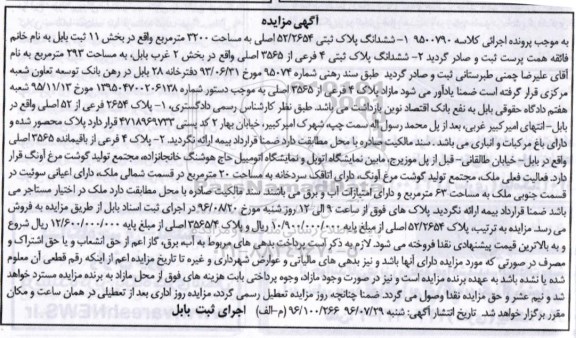 آگهی مزایده
به موجب پرونده اجرائی کلاسه ۹۵۰۰۷۹۰ ۱- ششدانگ پلاک ثبتی ۵۲/۲۶۵۴ اصلی به مساحت ۳۲۰۰ مترمربع واقع در بخش ۱۱ ثبت بابل به نام خانم
فائقه همت پرست ثبت و صادر گردید ۲- ششدانگ پلاک ثبتی ۴ فرعی از ۳۵۶۵ اصلی واقع در بخش ۲ غرب بابل، به مساحت ۲۹۳ مترمربع به نام
آقای علیرضا چمنی طبرستانی ثبت و صادر گردید طبق سند رهنی شماره ۹۵۰۷۴ مورخ ۹۳/۰۶/۳۱ دفترخانه ۲۸ بابل در رهن بانک توسعه تعاون شعبه
مرکزی قرار گرفته است ضمنا یادآور می شود مازاد ۴ فرعی از ۳۵۶۵ اصلی به موجب دستور شماره ۱۳۹۵۰۴۷۰۰۲۰۶۱۳۸ مورخ ۹۵/۱۱/۱۳ شعبه
هفتم دادگاه حقوقی بابل به نفع بانک اقتصاد نوین بازداشت می باشد. طبق نظر کارشناس رسمی دادگستری، ۱- پلاک ۲۶۵۴ فرعی از ۵۲ اصلی واقع در
بابل-انتهای امیرکبیر غربی، بعد از پل محمد رسول اله سمت چپ، شهرک امیرکبیر، خیابان بهار ۲ کد پستی ۴۷۱۸۹۶۹۷۳۳ قرار دارد پلاک محصور شده و
دارای باغ مرکبات و انباری می باشد. سند مالکیت صادره با محل مطابقت دارد ضمنا قرارداد بیمه ارائه نگردید. ۲- پلاک ۴ فرعی از باقیمانده ۳۵۶۵ اصلی
واقع در بابل- خیابان طالقانی- قبل از پل موزیرج، مابین نمایشگاه اتوپل و نمایشگاه اتومبیل حاج هوشنگ خانجانزاده، مجتمع تولید گوشت مرغ آونگ قرار
دارد. فعالیت فعلی ملک، مجتمع تولید گوشت مرغ آونگ، دارای اتاقک سردخانه به مساحت ۲۰ مترمربع در قسمت شمالی ملک، دارای اعیانی سوئیت در
قسمت جنوبی ملک به مساحت ۶۳ مترمربع و دارای امتیازات آب و برق می باشد. سند مالکیت صادره با محل مطابقت دارد ملک در اختیار مستاجر می
باشد ضمنا قرارداد بیمه ارائه نگردید. پلاک های فوق از ساعت ۹ الی ۱۲ روز شنبه مورخ ۹۶/۰۸/۲۰ در اجرای ثبت اسناد بابل از طریق مزایده به فروش
می رسد. مزایده به ترتیب، پلاک ۵۲/۲۶۵۴ اصلی از مبلغ پایه ۱۰/۹۰۰/۰۰۰/۰۰۰ ریال و پلاک ۳۵۶۵/۴ اصلی از مبلغ پایه ۱۲/۶۰۰/۰۰۰/۰۰۰ ریال شروع
و به بالاترین قیمت پیشنهادی نقدا فروخته می شود. لازم به ذکر است پرداخت بدهی های مربوطه به آب، برق، گاز اعم از حق انشعاب و یا حق اشتراک و
مصرف در صورتی که مورد مزایده دارای آنها باشد و نیز بدهی های مالیاتی و عوارض شهرداری و غیره تا تاریخ مزایده اعم از اینکه رقم قطعی آن معلوم
شده یا نشده باشد به عهده برنده مزایده است و نیز در صورت وجود مازاد، وجوه پرداختی بابت هزینه های فوق از محل مازاد به برنده مزایده مسترد خواهد
شد و نیم عشر و حق مزایده نقدا وصول می گردد. ضمنا چنانچه روز مزایده تعطیل رسمی گردد، مزایده روز اداری بعد از تعطیلی در همان ساعت و مکان
مقرر برگزار خواهد شد. تاریخ انتشار آگهی: شنبه ۹۶/۰۷/۲۹ ۹۶/۱۰۰/۲۶۶ (م-الف) اجرای ثبت بابل